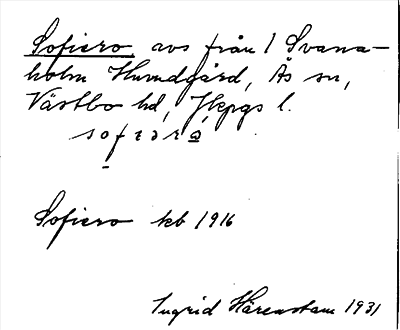 Sofiero, avs från 1 Svana-
holm Huvudgård, Ås sn,
Västbo hd, Jkpgs l.
sofɪərω
Sofiero kb 1916
Ingrid Härenstam 1931